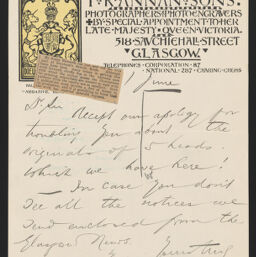 T. & R. ANNAN & SONS.
PHOTOGRAPHERS, PHOTO ENGRAVERS
BY SPECIAL APPOINTMENT TO HER
LATE MAJESTY QUEEN VICTORIA.
518 SAUCHIEHALL STREET
GLASGOW
TELEPHONES - CORPORATION 87
- NATIONAL - 287 - CHARING-CROSS
1 June
Dr Sir
Accept our apology for
troubling you about the
originals of 5 heads.
Which we have here!
In case you don't
see all the notices we
send enclosed from the
Glasgow News.
Yours truly